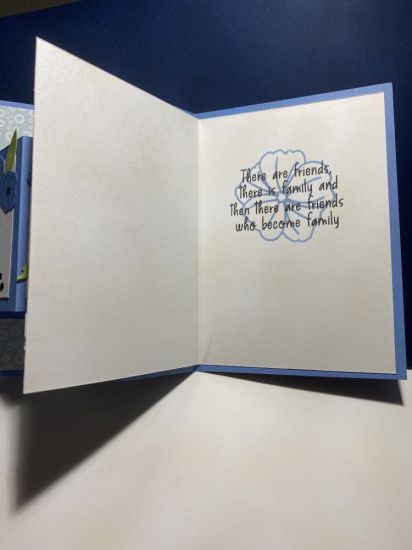 There are friends,
there is family and
then there are friends
who become family